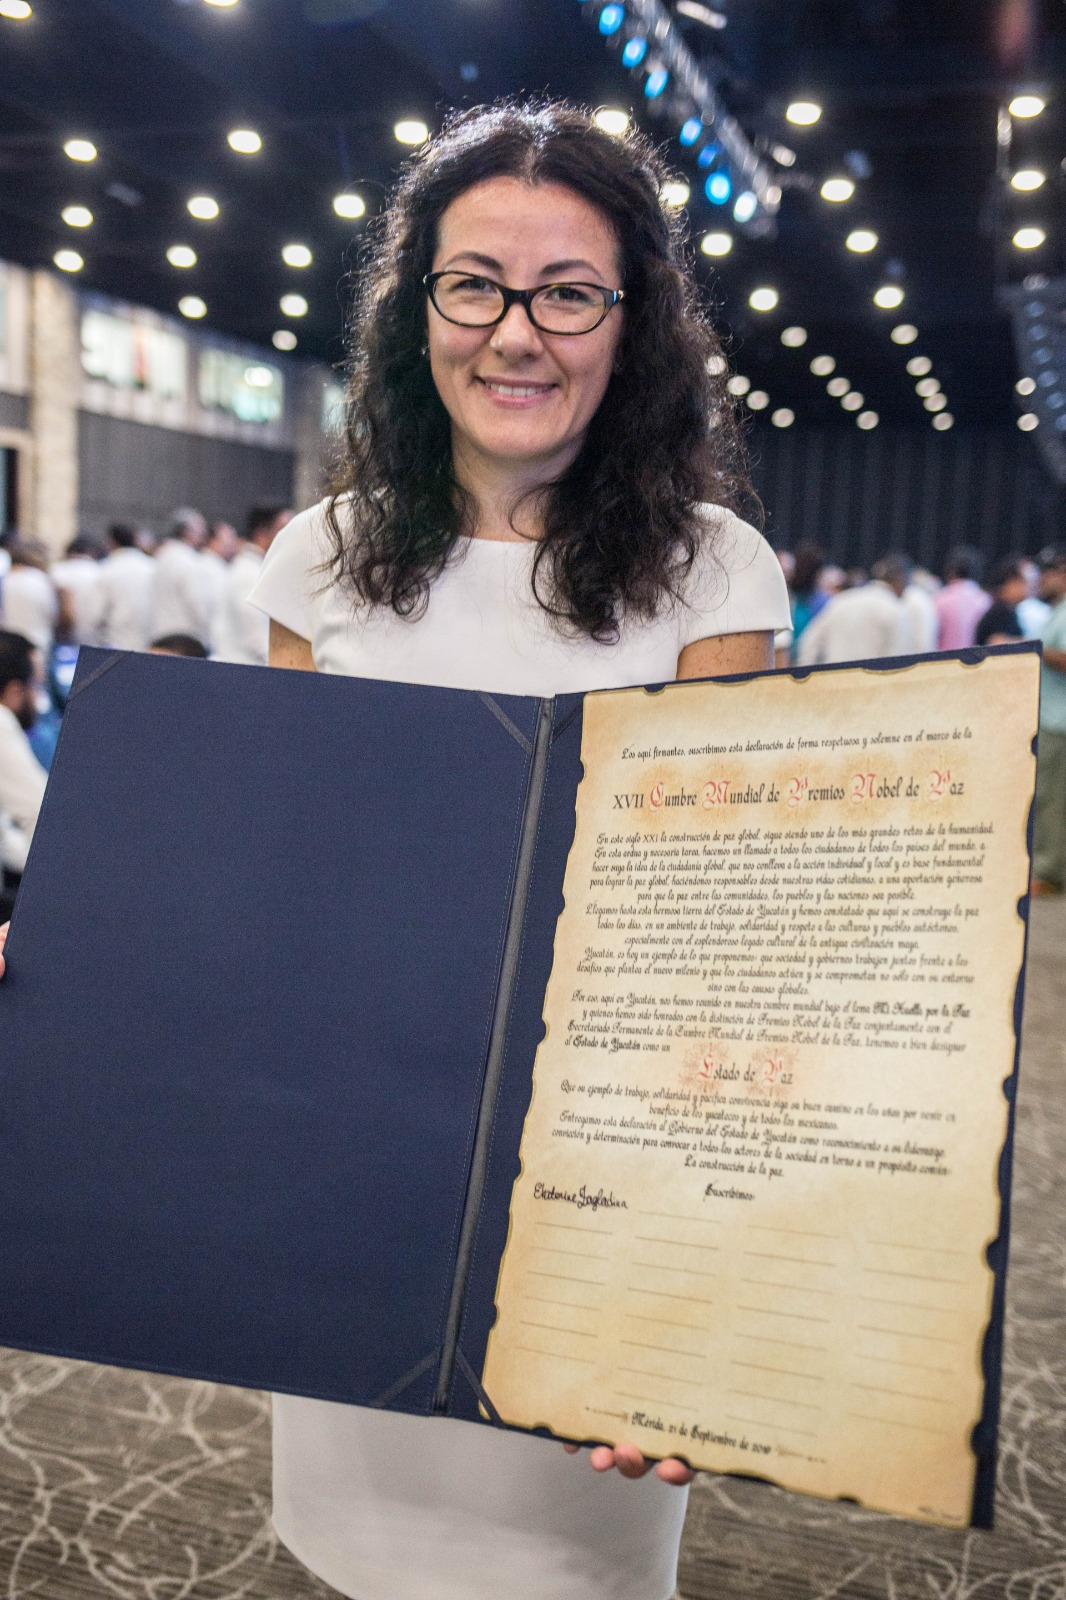 Los aquí firmantes, suscribimos esta declaración de forma respetuosa y solemne en el marco de la
XVII Cumbre Mundial de Premios Nobel de Paz
En este siglo XXI la construcción de paz global, sigue siendo uno de los más grandes retos de la humanidad.
En esta ardua y necesaria tarea, hacemos un llamado a todos los ciudadanos de todos los países del mundo, a
hacer suya la idea de la ciudadanía global, que nos conlleva a la acción individual y local y es base fundamental
para lograr la paz global, haciéndonos responsables desde nuestras vidas cotidianas, a una aportación generosa
para que la paz entre las comunidades, los pueblos y las naciones sea posible.
Llegamos hasta esta hermosa tierra del Estado de Yucatán y hemos constatado que aquí se construye la paz
todos los días, en un ambiente de trabajo, solidaridad y respeto a las culturas y pueblos autóctonos,
especialmente con el esplendoroso legado cultural de la antigua civilización maya.
Yucatán, es hoy un ejemplo de lo que proponemos: que sociedad y gobiernos trabajen juntos frente a los
desafíos que plantea el nuevo milenio y que los ciudadanos actúen y se comprometan no sólo con su entorno
sino con las causas globales.
Por eso, aquí en Yucatán, nos hemos reunido en nuestra cumbre mundial bajo el lema Mi Huella por la Paz
y quienes hemos sido honrados con la distinción de Premios Nobel de la Paz conjuntamente con el
Secretariado Permanente de la Cumbre Mundial de Premios Nobel de la Paz, tenemos a bien designar
al Estado de Yucatán como un
Estado de Paz
Que su ejemplo de trabajo, solidaridad y pacífica convivencia siga su buen camino en los años por venir en
beneficio de los yucatecos y de todos los mexicanos.
Entregamos esta declaración al Gobierno del Estado de Yucatán como reconocimiento a su liderazgo,
convicción y determinación para convocar a todos los actores de la sociedad en torno a un propósito común:
La construcción de la paz.
Suscribimos:
Ekaterine Zagladina
Mérida, 21 de Septiembre de 2019